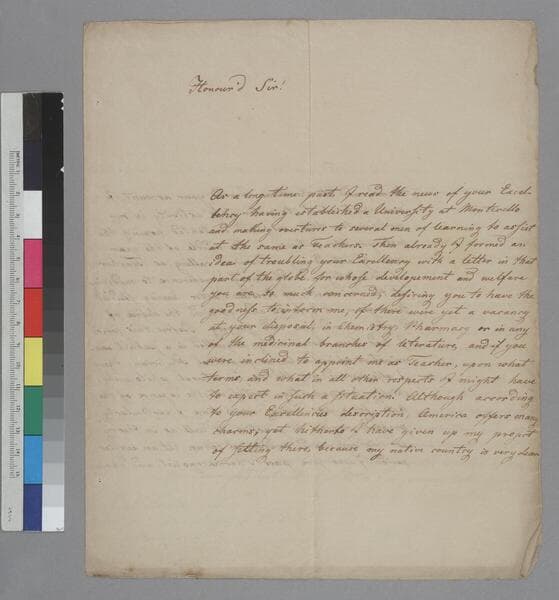 Honour'd Sir!
As a long time past I read the news of your Excel-
lency having established a University at Monticello
and making overtures to several men of learning to assist
at the same as Teachers. Then already I formed an
idea of troubling your Excellency with a letter in that
part of the globe for whose developement and welfare
you are so much concerned; desiring you to have the
goodness to inform me, if there were yet a vacancy
at your disposal, in Chemistry, Pharmacy or in any
of the medicinal branches of literature, and if you
were inclined to appoint me as Teacher, upon what
terms, and what in all other respects I might have
to expect in such a situation. Although according
to your Excellencies description, America offers many
charms; yet hitherto I have given up my project
of setling there, because my native country is very dear